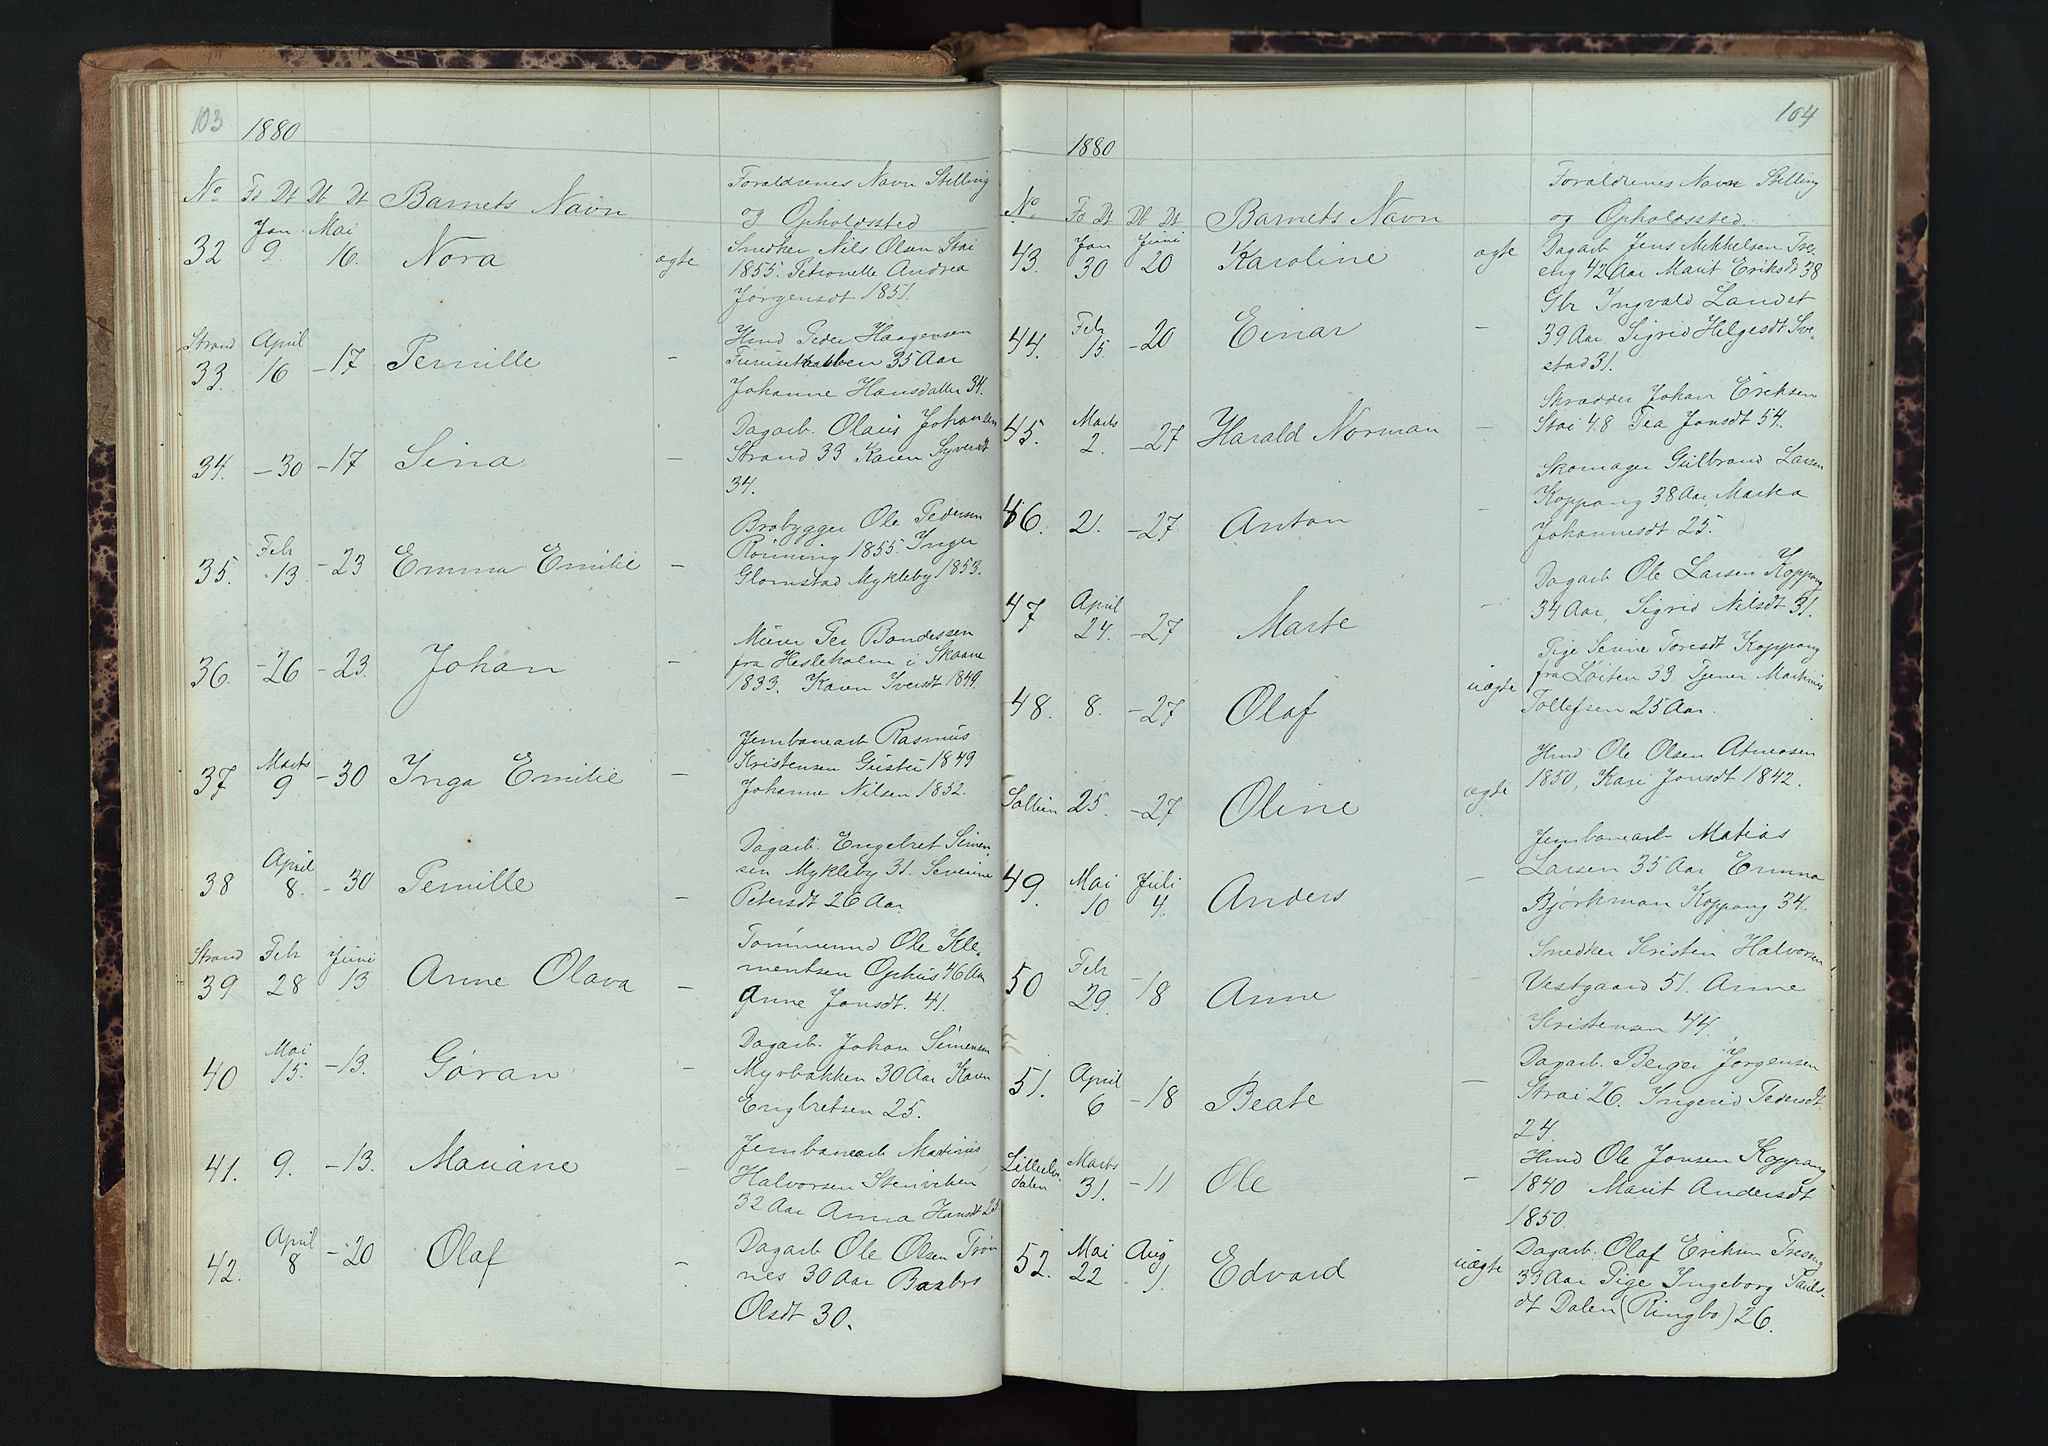 103
1880
No Fd Dt Db Dt Barnets Navn
Foraldrenes Navn Stilling
og Opholdssted
Jan Mai
32 9. 16. Nora ægte
Snedker Nils Olsen Stai
1855. Petronelle Andrea
Jørgensdt 1851.
Strand April
33. 16 -17 Pernille -
Hmd Peder Haagensen
35 Aar
Johanne Hansdatter 34.
34. -30 -17 Sina -
Dagarb. Olaus Johansen
Strand 33 Karen Syversdt
34.
Feb
35. 13 -23 Emma Emilie -
Brobygger Ole Pedersen
Rønning 1855. Inger
Glomstad Mykleby 1853.
36. -26 -23. Johan -
Murer Per Bondessen
fra Hesleholm i Skaane
1833. Karen Iversdt 1849.
Marts
37 9 -30 Inga Emilie -
Jernbanearb Rasmus
Kristensen 1849
Johanne Nilsen 1852.
April
38 8. -30 Pernille -
Dagarb. Engebret Simen-
sen Mykleby 31. Severine
Petersdt 26 Aar.
Strand Feb Juni
39 28 13 Anne Olava -
Tømmermd Ole Kle-
mentsen Ophus 46 Aar
Anne Jonsdt. 41.
Mai
40 15. -13. Gøran -
Dagarb. Johan Simensen
Myrbakken 30 Aar Karen
Engbretsen 25.
41. 9. -13. Mariane -
Jernbanearb Martinus
Halvorsen Stenviken
32 Aar Anna Hansdt 25
April
42. 8 -20 Olaf -
Dagarb Ole Olsen Trøn
nes 30 Aar Barbro
Olsdt 30.
104
1880
No Fd Dt Db Dt Barnets Navn
Foraldrenes Navn Stilling
og Opholdssted.
Jan Juni
43. 30 20 Karoline ægte
Dagarb Jens Mikkelsen Tres-
eng 42 Aar Marit Eriksdt 38
Feb
44. 15. -20 Einar -
Gbr Ingvald Landet
39 Aar Sigrid Helgesdt Sve-
stad 31.
Marts
45. 2. -27 Harald Norman -
Skrædder Johan Eriksen
Stai 48 Tea Jonsdt 54.
46. 21. -27 Anton -
Skomager Gulbrand Larsen
Koppang 38 Aar, Marta
Johannesdt 25.
April
47 24. -27 Marte -
Dagarb Ole Larsen Koppang
34 Aar, Sigrid Nilsdt 31.
48. 8. -27 Olaf uægte
Pige Toresdt Koppang
fra Løiten 33. Tjener Martinus
Tollefsen 25 Aar.
Sollien 25. -27 Oline ægte
Hmd Ole Olsen Atneosen
1850, Kari Jonsdt 1842.
49. Mai Juli
10 4. Anders -
Jernbanearb Matias
Larsen 35 Aar Emma
Bjørkman Koppang 34.
Feb
50 29. -18 Anne -
Snedker Kristen Halvorsen
Vestgaard 51. Anne
Kristensen 44.
April
51. 6 -18 Beate -
Dagarb. Berger Jørgensen
Strai 26. Ingerid Pedersdt
24.
Lilleelv-
dalen Marts
31. -11 Ole -
Hmd Ole Jonsen Koppang
1840 Marit Andersdt
1850.
52. Mai Aug
22 1. Edvard uægte
Dagarb. Olaf Eriksen Treseng
33 Aar Pige Ingeborg Pauls-
dt Dalen (Ringbo) 26.